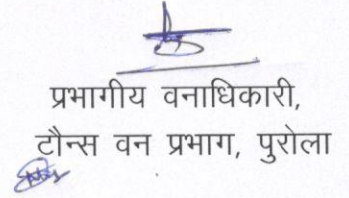 प्रभागीय वनाधिकारी,
टौन्स वन प्रभाग, पुरोला